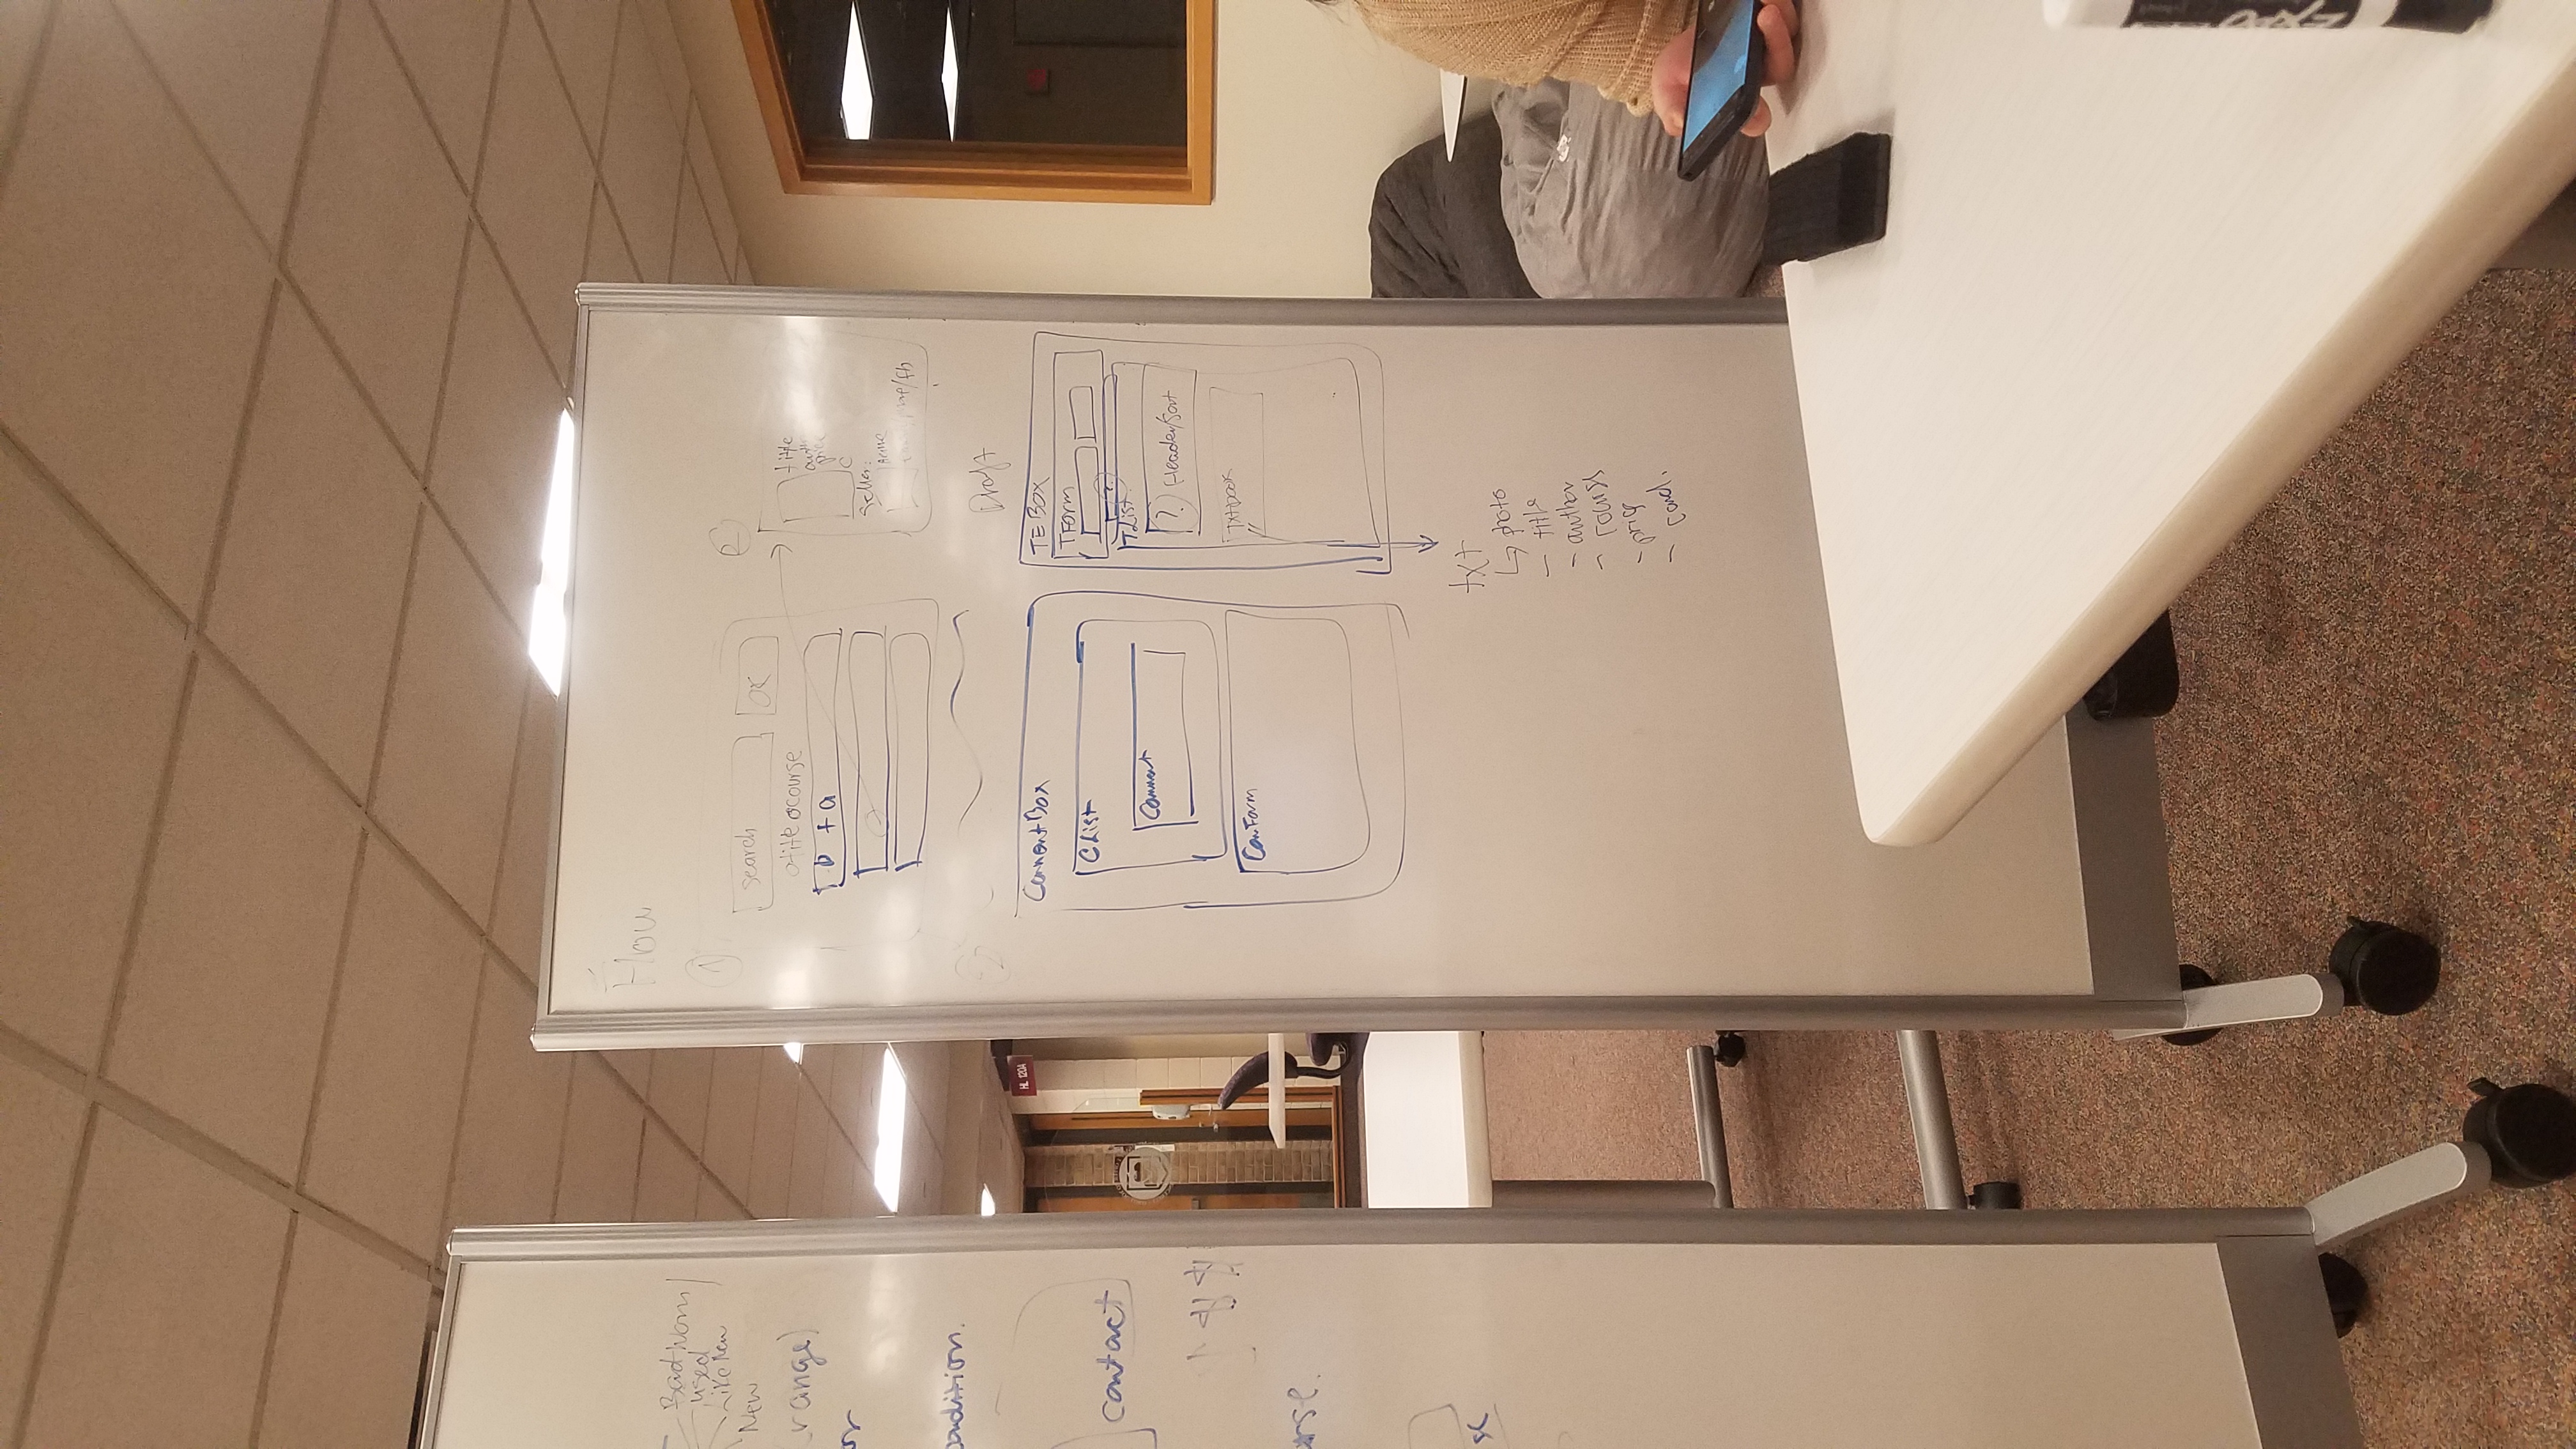 Bad/Worn/
used
Like New
New
(range)
or
condition.
contact
$$
Flow
1
search
OK
o title o course
b + a
2
title
price
C
Seller:
/fb
2
Draft
CommentBox
CList
Comment
ComForm
TEBOX
TForm
?
TList
? Header/Sort
Txtbook
txt
↳ photo
- title
- author
- course
- price
- cond.
HL 120A
EXPO